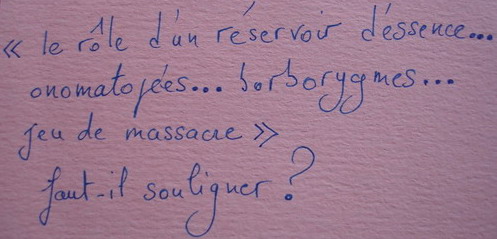 « le rôle d'un réservoir d'essence...
onomatopées... borborygmes...
jeu de massacre »
faut-il souligner ?